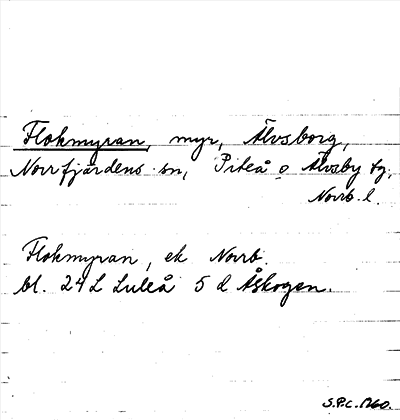 Flokmyran, myr, Älvsborg,
Norrfjärdens sn, Piteå o Älvsby tg,
Norrb. l.
Flokmyran, ek Norrb.
bl. 24 L Luleå 5 d Åskogen.
S.P.C. 1760.